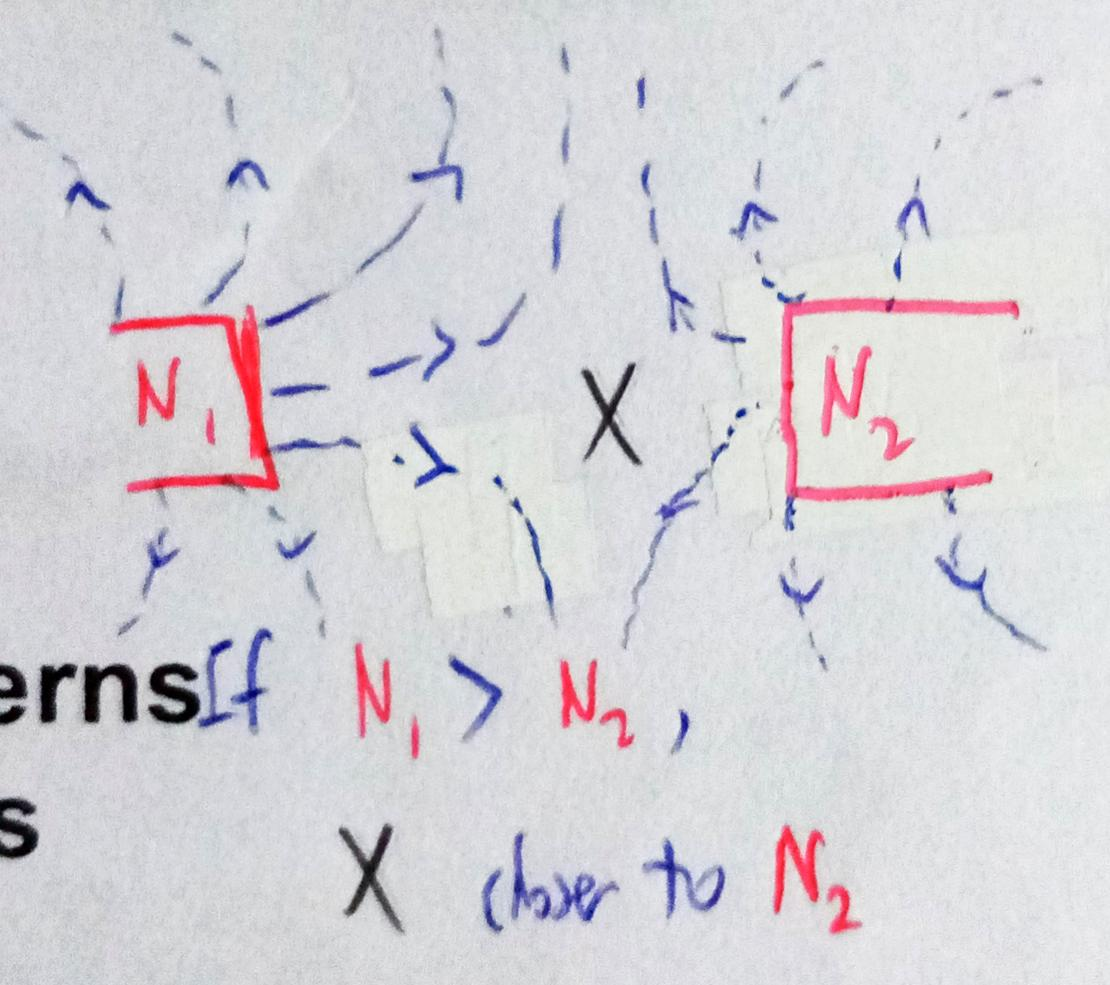 N₁ X N₂
ernsIf N₁ > N₂,
s
X closer to N₂